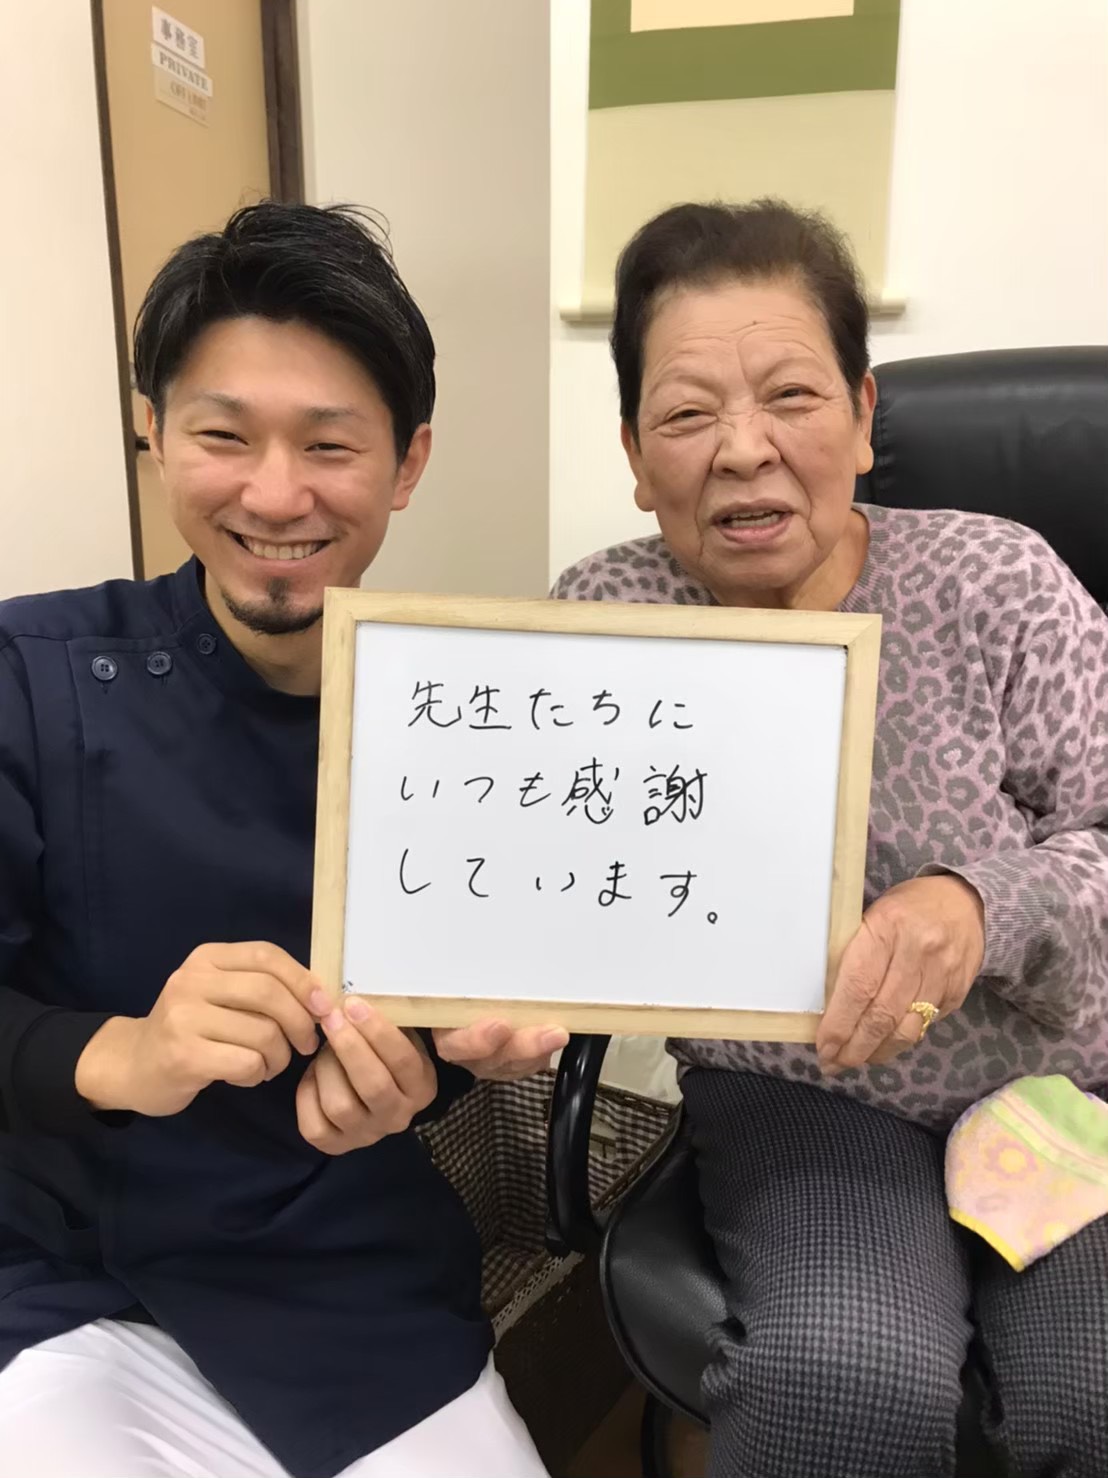 事務室
PRIVATE
先生たちに
いつも感謝
しています。